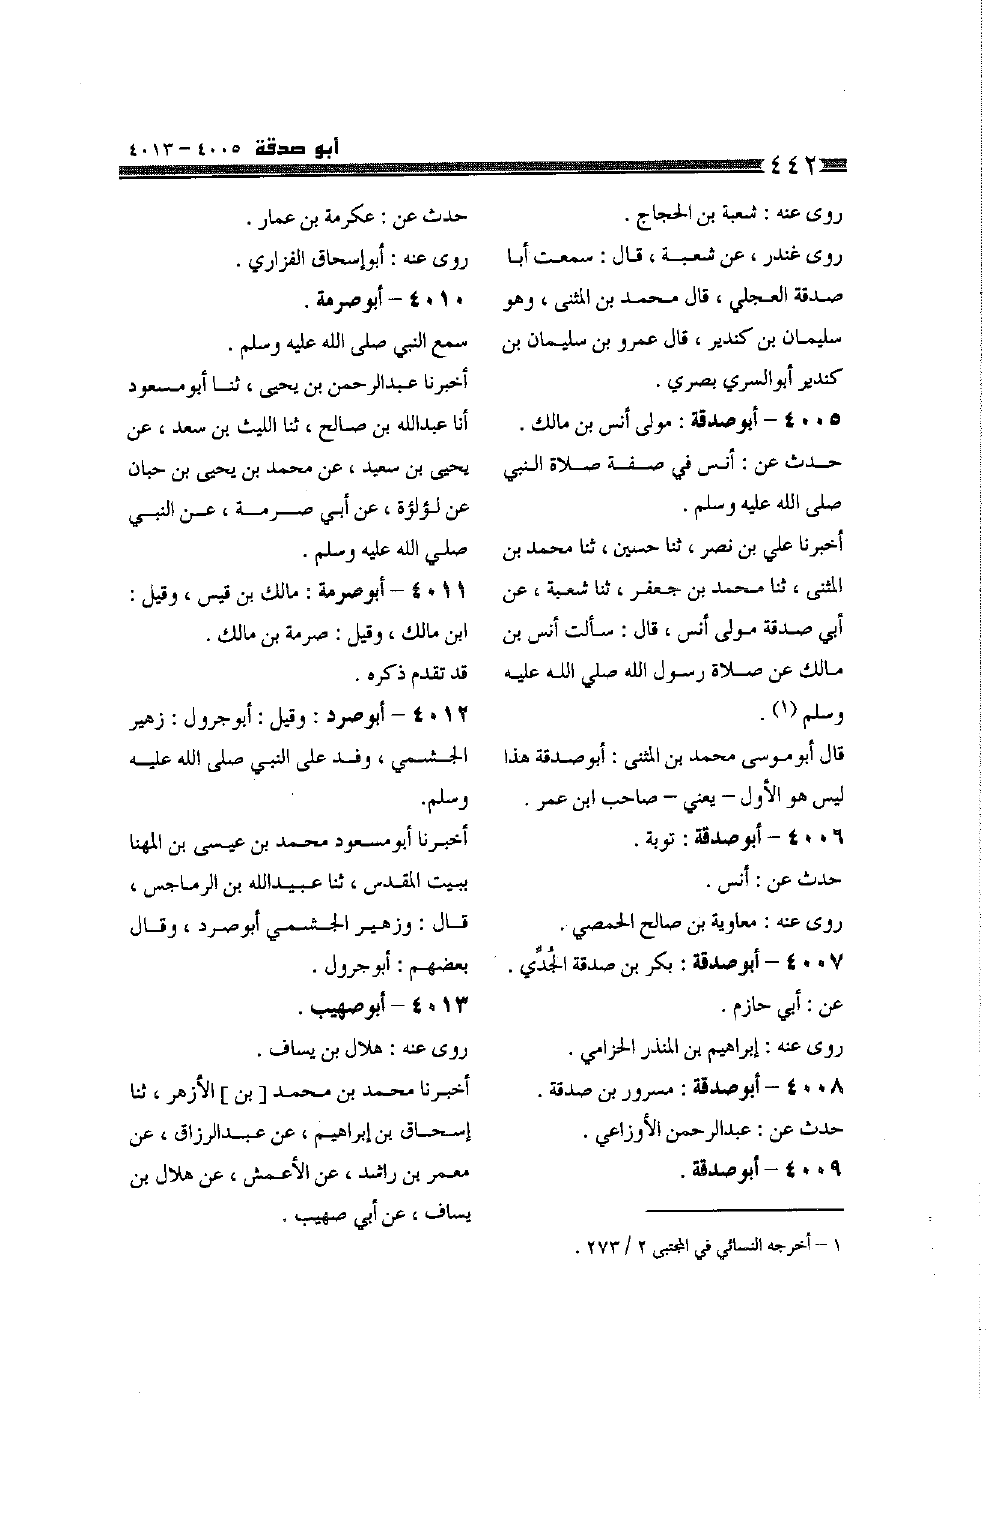 أبو صدقة ٤٠٠٥ – ٤٠١٣
٤٤٢
روى عنه : شعبة بن الحجاج .
روى غندر ، عن شعبة ، قال : سمعت أبا
صدقة العجلي ، قال محمد بن المثنى ، وهو
سليمان بن كندير ، قال عمرو بن سليمان بن
كندير أبوالسري بصري .
٤٠٠٥ – أبوصدقة : مولى أنس بن مالك .
حدث عن : أنس في صفة صلاة النبي
صلى الله عليه وسلم .
أخبرنا علي بن نصر ، ثنا حسين ، ثنا محمد بن
المثنى ، ثنا محمد بن جعفر ، ثنا شعبة ، عن
أبي صدقة مولى أنس ، قال : سألت أنس بن
مالك عن صلاة رسول الله صلي الله عليه
وسلم (١) .
قال أبوموسى محمد بن المثنى : أبوصدقة هذا
ليس هو الأول – يعني – صاحب ابن عمر .
٤٠٠٦ – أبوصدقة : توبة .
حدث عن : أنس .
روى عنه : معاوية بن صالح الحمصي .
٤٠٠٧ – أبوصدقة : بكر بن صدقة الجُدِّي .
عن : أبي حازم .
روى عنه : إبراهيم بن المنذر الحزامي .
٤٠٠٨ – أبوصدقة : مسرور بن صدقة .
حدث عن : عبدالرحمن الأوزاعي .
٤٠٠٩ – أبوصدقة .
١ – أخرجه النسائي في المجتبى ٢ / ٢٧٣ .
حدث عن : عكرمة بن عمار .
روى عنه : أبوإسحاق الفزاري .
٤٠١٠ – أبوصرمة .
سمع النبي صلى الله عليه وسلم .
أخبرنا عبدالرحمن بن يحيى ، ثنا أبومسعود
أنا عبدالله بن صالح ، ثنا الليث بن سعد ، عن
يحيى بن سعيد ، عن محمد بن يحيى بن حبان
عن لؤلؤة ، عن أبي صرمة ، عن النبي
صلي الله عليه وسلم .
٤٠١١ – أبوصرمة : مالك بن قيس ، وقيل :
ابن مالك ، وقيل : صرمة بن مالك .
قد تقدم ذكره .
٤٠١٢ – أبوصرد : وقيل : أبوجرول : زهير
الجشمي ، وفد على النبي صلى الله عليه
وسلم.
أخبرنا أبومسعود محمد بن عيسى بن المهنا
ببيت المقدس ، ثنا عبيدالله بن الرماجس ،
قال : وزهير الجشمي أبوصرد ، وقال
بعضهم : أبوجرول .
٤٠١٣ – أبوصهيب .
روى عنه : هلال بن يساف .
أخبرنا محمد بن محمد [ بن ] الأزهر ، ثنا
إسحاق بن إبراهيم ، عن عبدالرزاق ، عن
معمر بن راشد ، عن الأعمش ، عن هلال بن
يساف ، عن أبي صهيب .